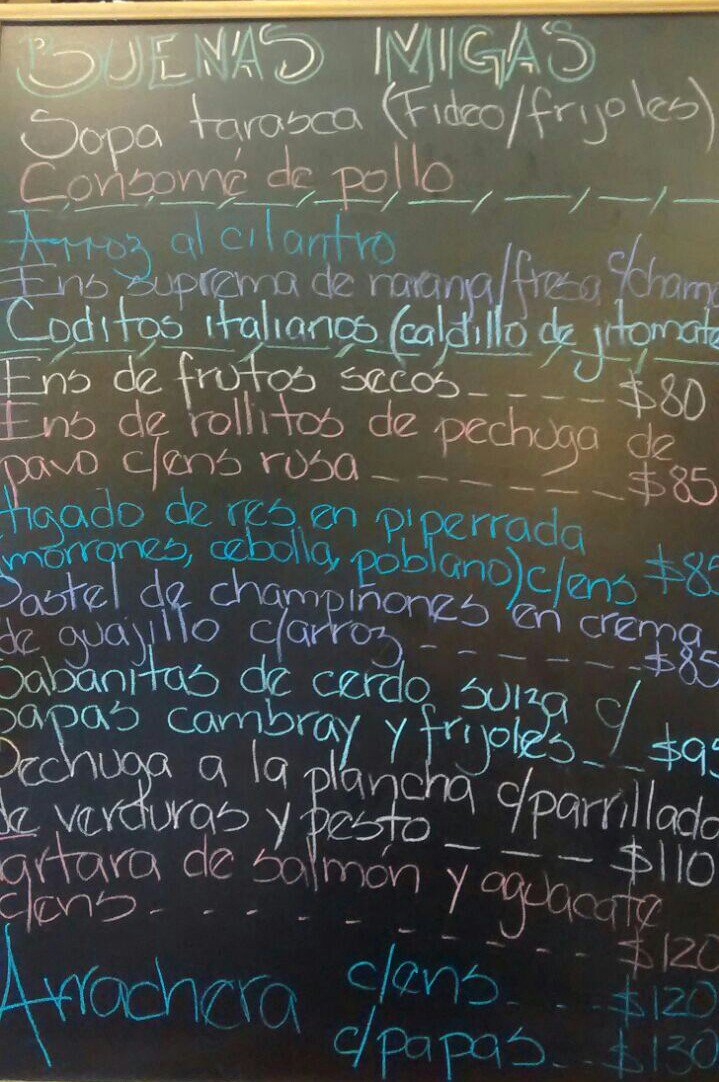 BUENAS MIGAS
Sopa tarasca (Fideo/frijoles)
Consomé de pollo
Arroz al cilantro
Ens suprema de naranja/fresa c/cham
Coditos italianos (caldillo de jitomate
Ens de frutos secos $80
Ens de rollitos de pechuga de
pavo c/ens rusa $85
Higado de res en piperrada
(morrones, cebolla, poblano) c/ens $85
Pastel de champiñones en crema
de guajillo c/arroz $85
Sabanitas de cerdo suiza c/
papas cambray y frijoles $95
Pechuga a la plancha c/parrillada
de verduras y pesto $110
Tartara de salmón y aguacate
c/ens $120
Arrachera c/ens $120
c/papas $130